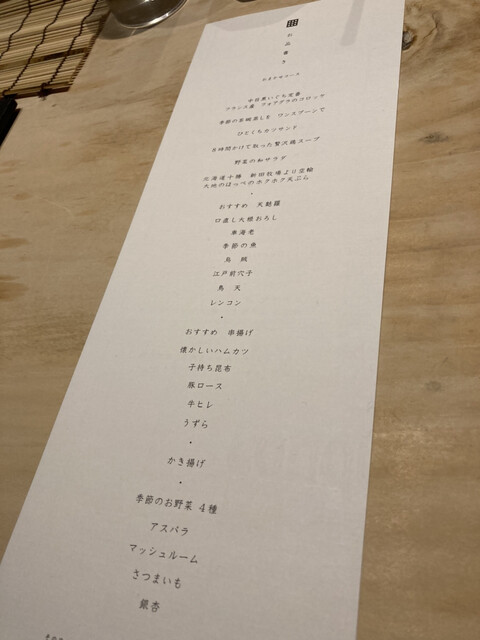 お品書き
おまかせコース
中目黒いぐち定番
フランス産 フォアグラのコロッケ
季節の茶碗蒸しを ワンスプーンで
ひとくちカツサンド
8時間かけて取った贅沢鶏スープ
野菜の和サラダ
北海道十勝 新田牧場より直輸
大地のほっぺのホクホク天ぷら
・
おすすめ 天麩羅
口直し大根おろし
車海老
季節の魚
烏賊
江戸前穴子
鳥天
レンコン
・
おすすめ 串揚げ
懐かしいハムカツ
子持ち昆布
豚ロース
牛ヒレ
うずら
・
かき揚げ
・
季節のお野菜 4種
アスパラ
マッシュルーム
さつまいも
銀杏